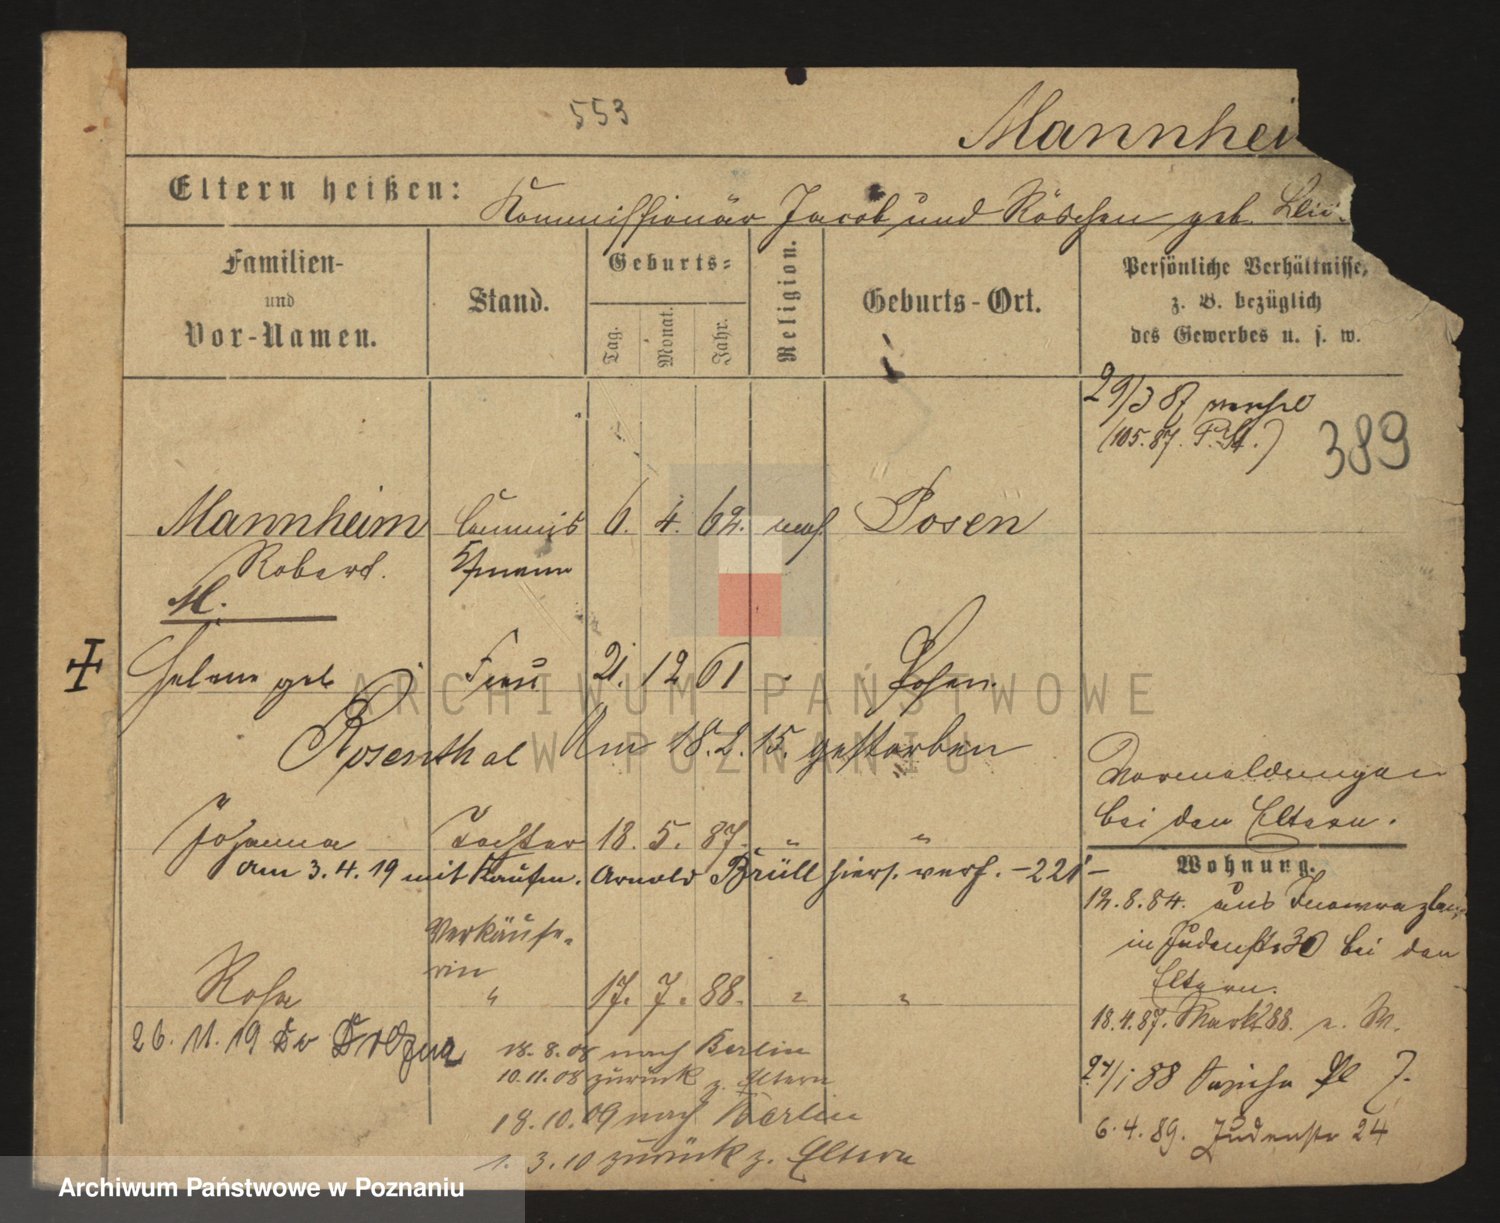 553
Mannhei
Eltern heißen: Kommissionär Jacob und Röschen geb.
Familien-
und
Vor-Namen.
Stand.
Geburts-
Tag.
Monat.
Jahr.
Religion.
Geburts-Ort.
Persönliche Verhältnisse,
z. B. bezüglich
des Gewerbes u. s. w.
29/3 87
(105.87. P. St.)
389
Mannheim Commis 6. 4. 62. mos. Posen
Robert.
M.
Helene geb Frau 21. 12 61 Posen.
Rosenthal Am 18. 2. 15. gestorben
Vormeldungen
bei den Eltern.
Johanna Tochter 18. 5. 87. " "
am 3. 4. 19 mit Kaufm. Arnold Brüll hiers. verh. -221-
Wohnung.
12. 8. 84. aus Inowrazlaw
in Judenstr 30 bei den
Eltern.
Verkäufe-
rin
Rosa " 17. 7. 88. " "
18. 4. 87. Markt 88.
26. 11. 19
18. 8. 08 nach Berlin
10. 11. 08 zurück z. Eltern
18. 10. 09 nach Berlin
1. 3. 10 zurück z. Eltern
24/1 88 Sapieha Pl 7.
6. 4. 89. Judenstr 24
ARCHIWUM PAŃSTWOWE
W POZNANIU
Archiwum Państwowe w Poznaniu